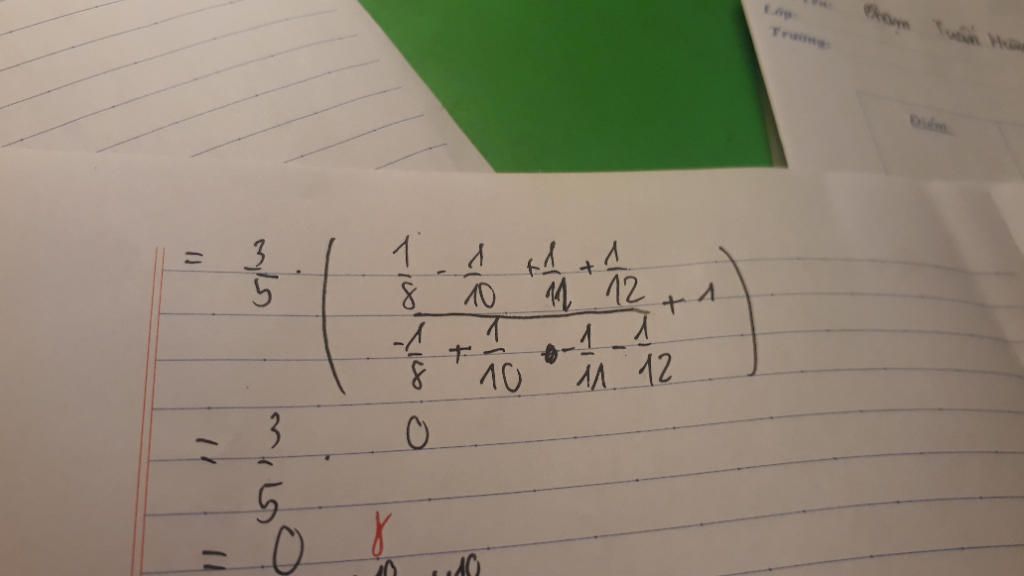 Lớp:
Trường:
Tuấn
Điểm
= 3/5 · ( (1/8 - 1/10 + 1/11 + 1/12) / (-1/8 + 1/10 - 1/11 - 1/12) + 1 )
= 3/5 · 0
= 0 8